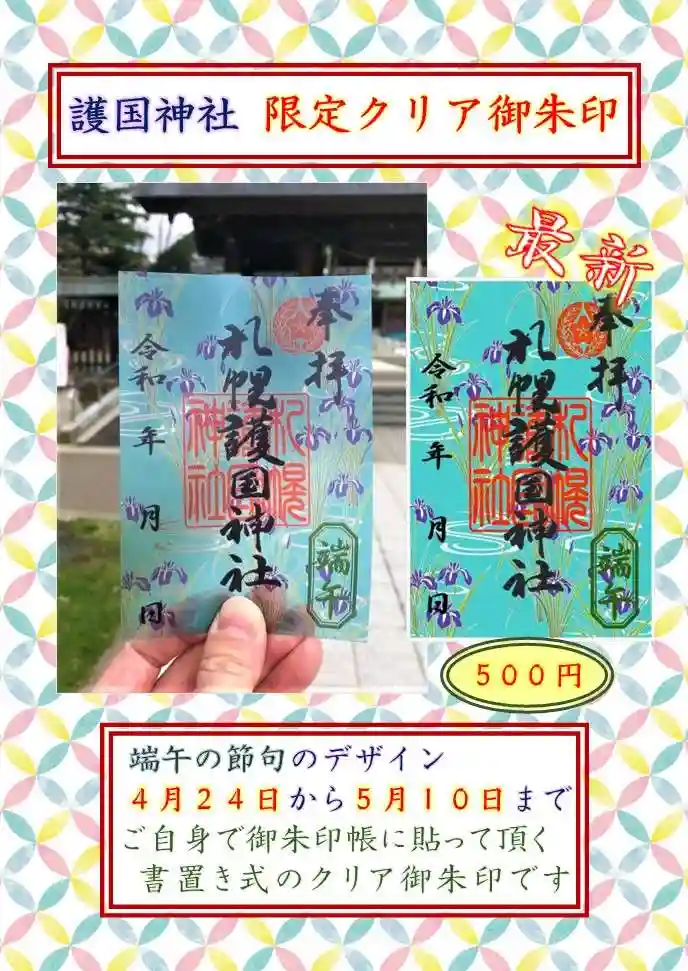 護国神社 限定クリア御朱印
最新
奉拝
札幌護国神社
令和 年 月 日
札幌
神社
端午
奉拝
札幌護国神社
令和 年 月 日
札幌
神社
端午
500円
端午の節句のデザイン
4月24日から5月10日まで
ご自身で御朱印帳に貼って頂く
書置き式のクリア御朱印です